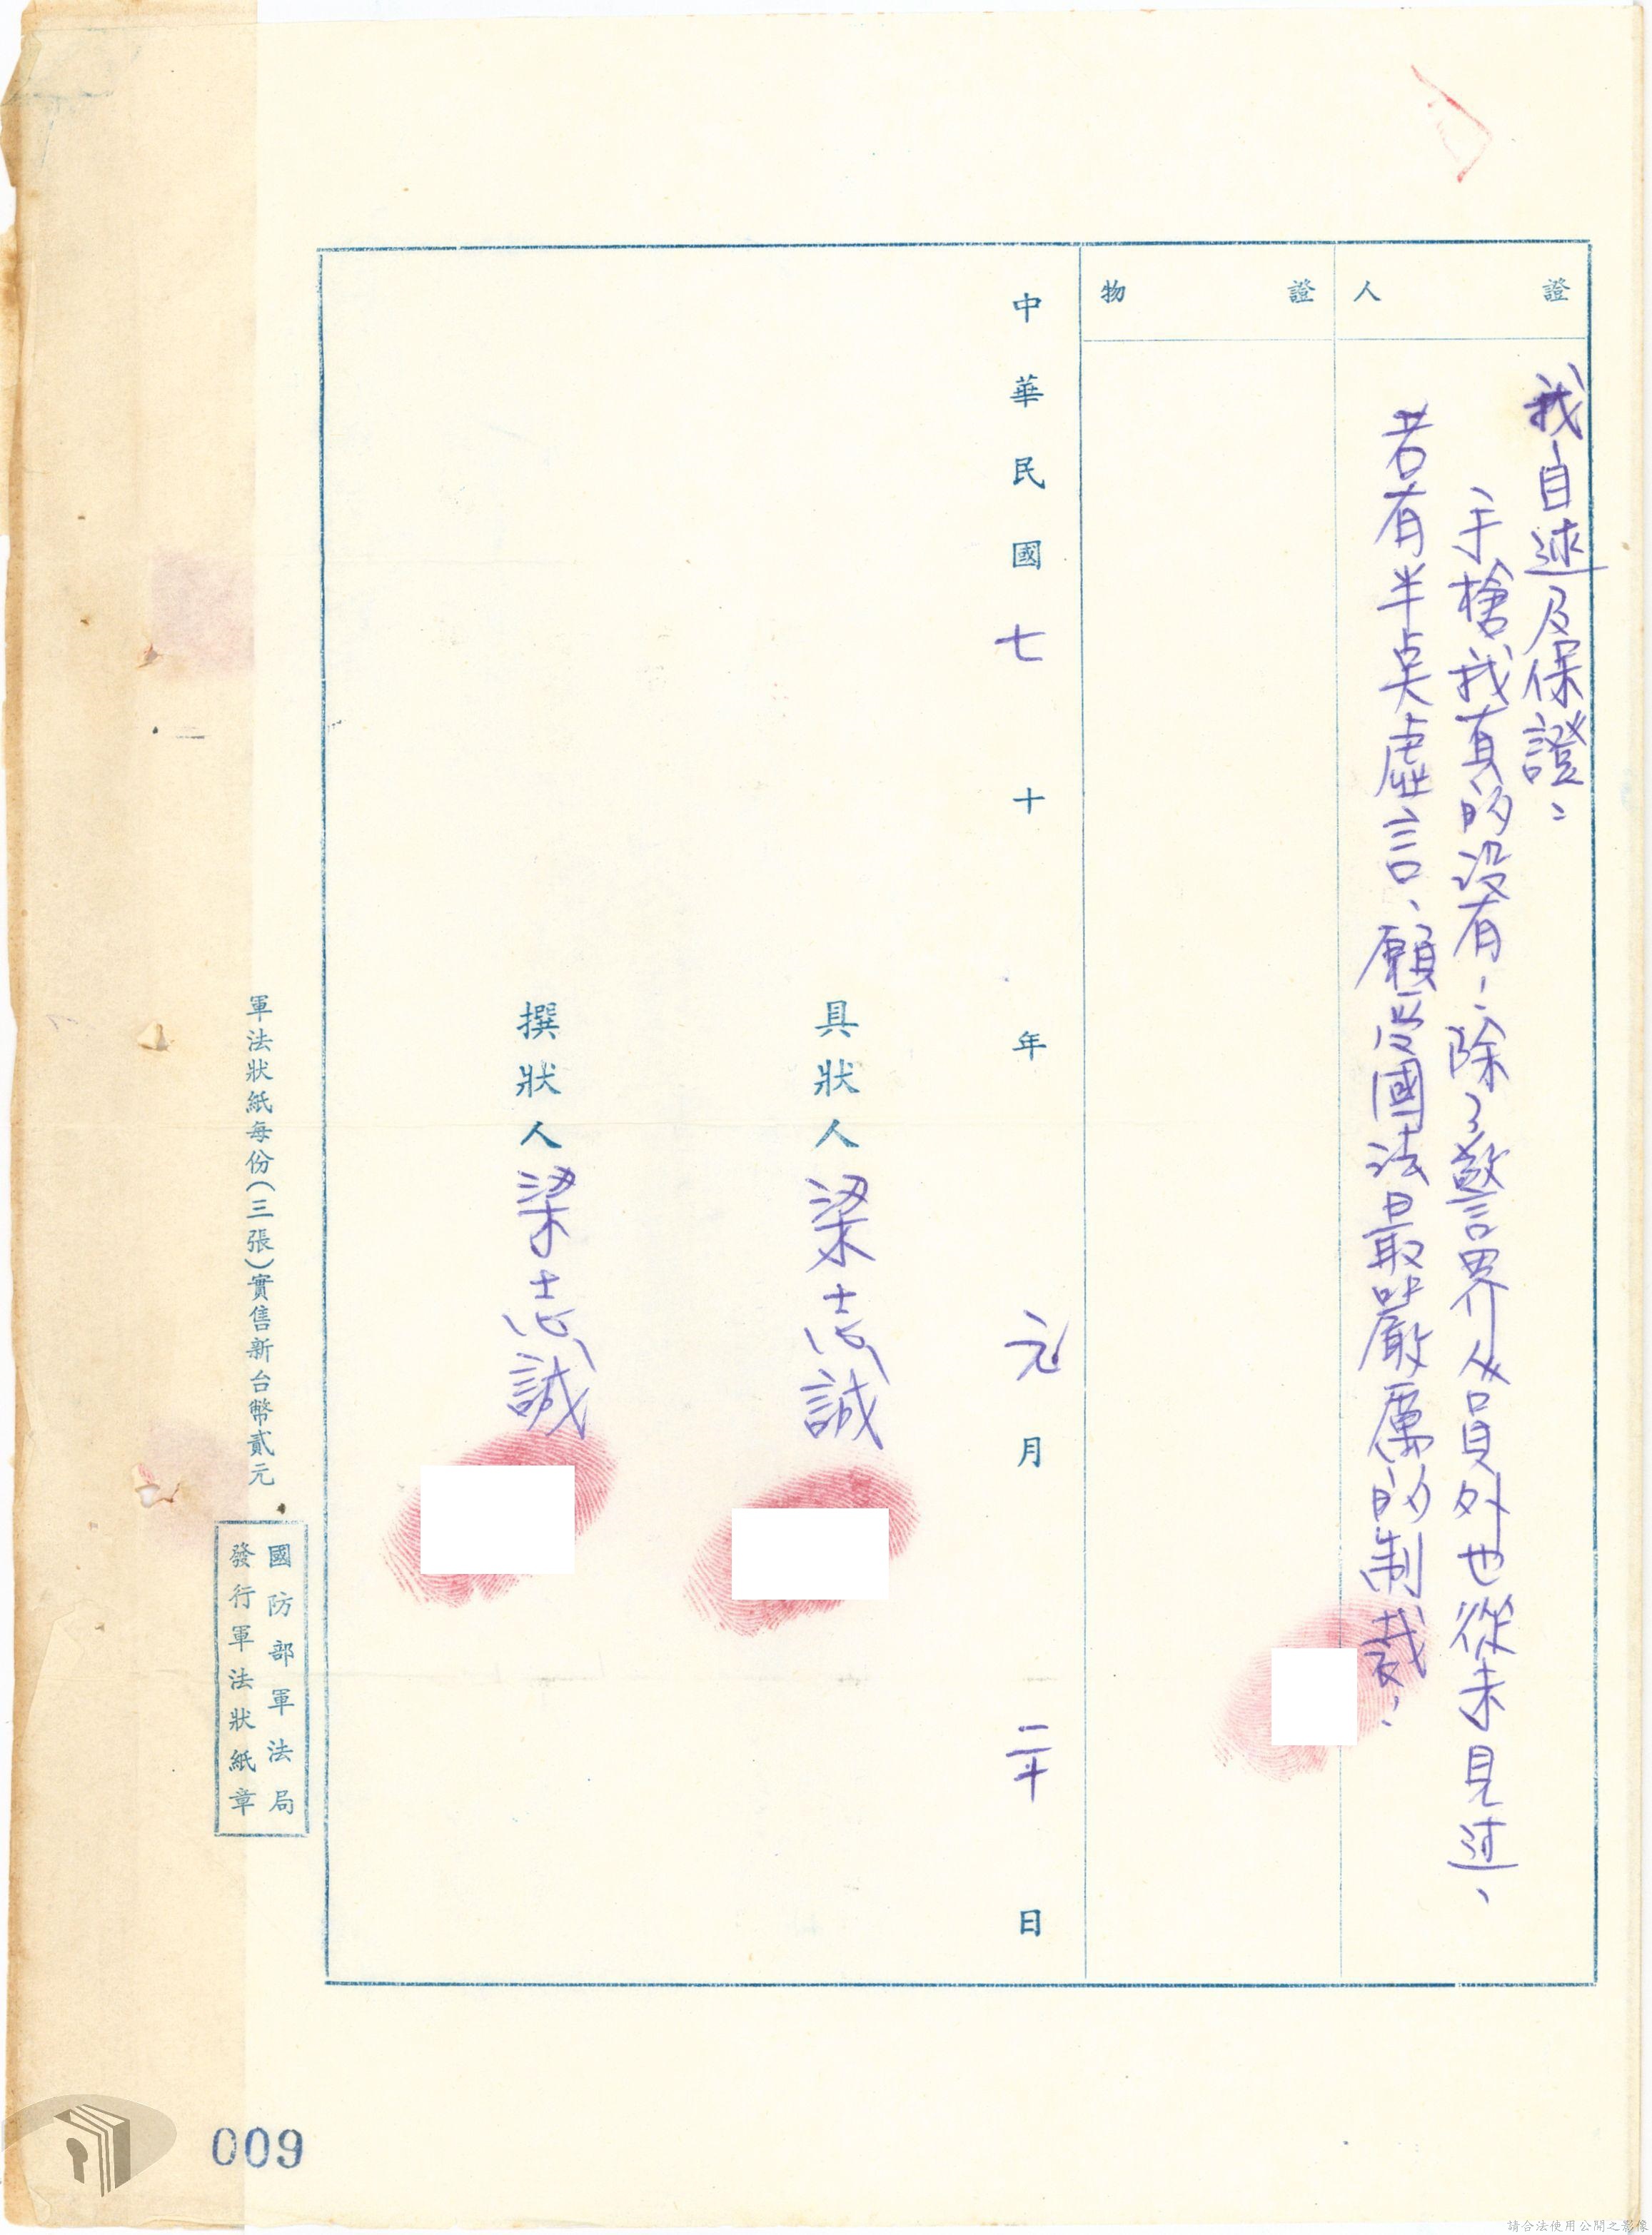 證人
我自述及保證：
手槍我真的沒有；除了警界人員外也從未見过、
若有半点虛言、願受國法最嚴厲的制裁；
證物
中華民國七十年元月二十日
具狀人梁志誠
撰狀人梁志誠
軍法狀紙每份（三張）實售新台幣貳元
國防部軍法局
發行軍法狀紙章
009
請合法使用公開之影像